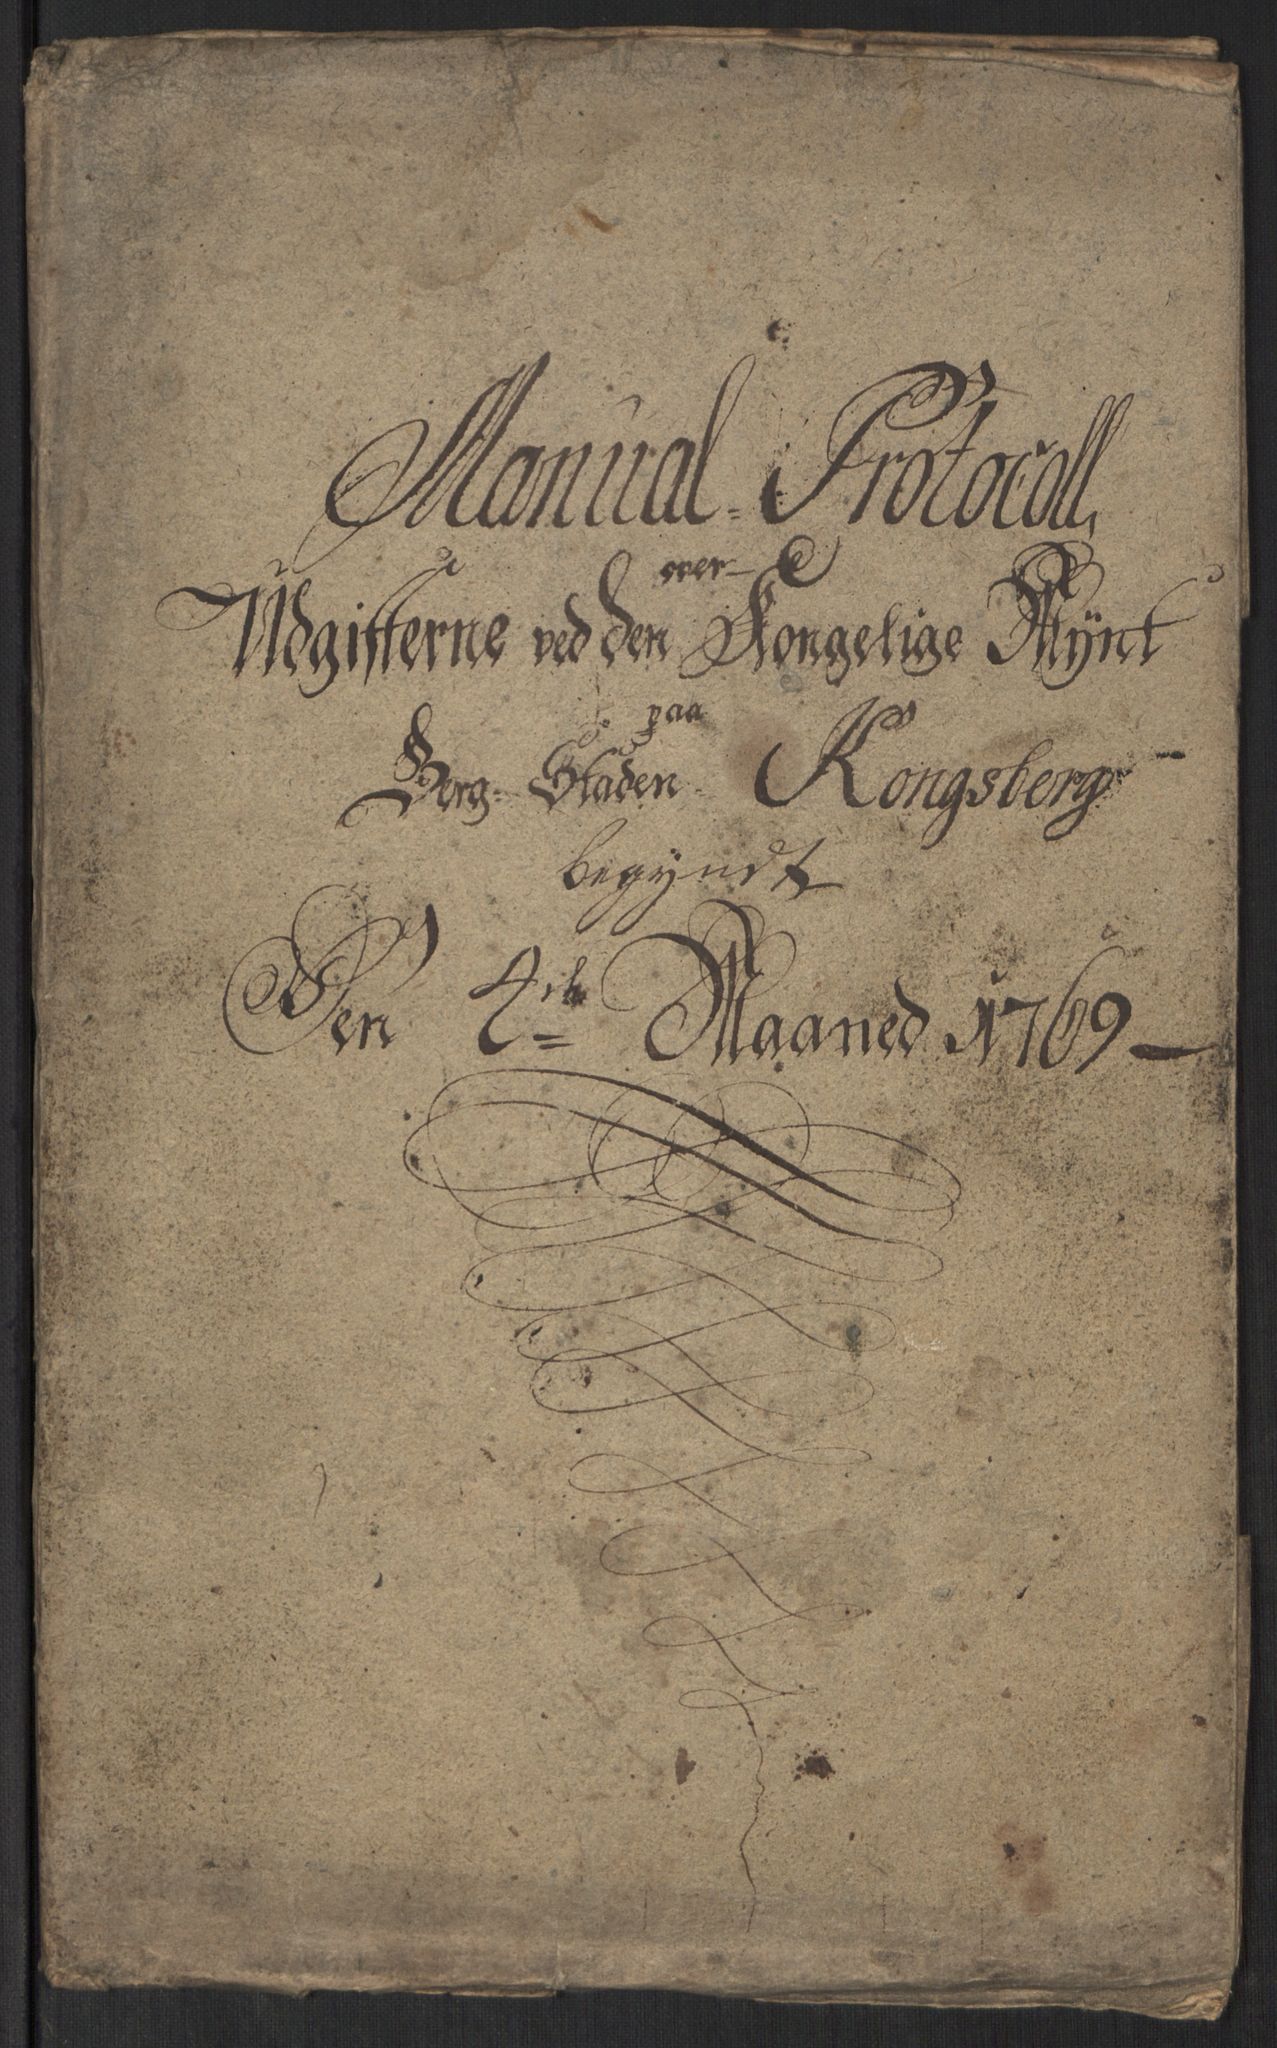 Manual- Protocoll,
over
Udgifterne ved den Kongelige Mÿnt
paa
Berg- Staden Kongsberg
begÿndt
Den 2de Maaned 1769